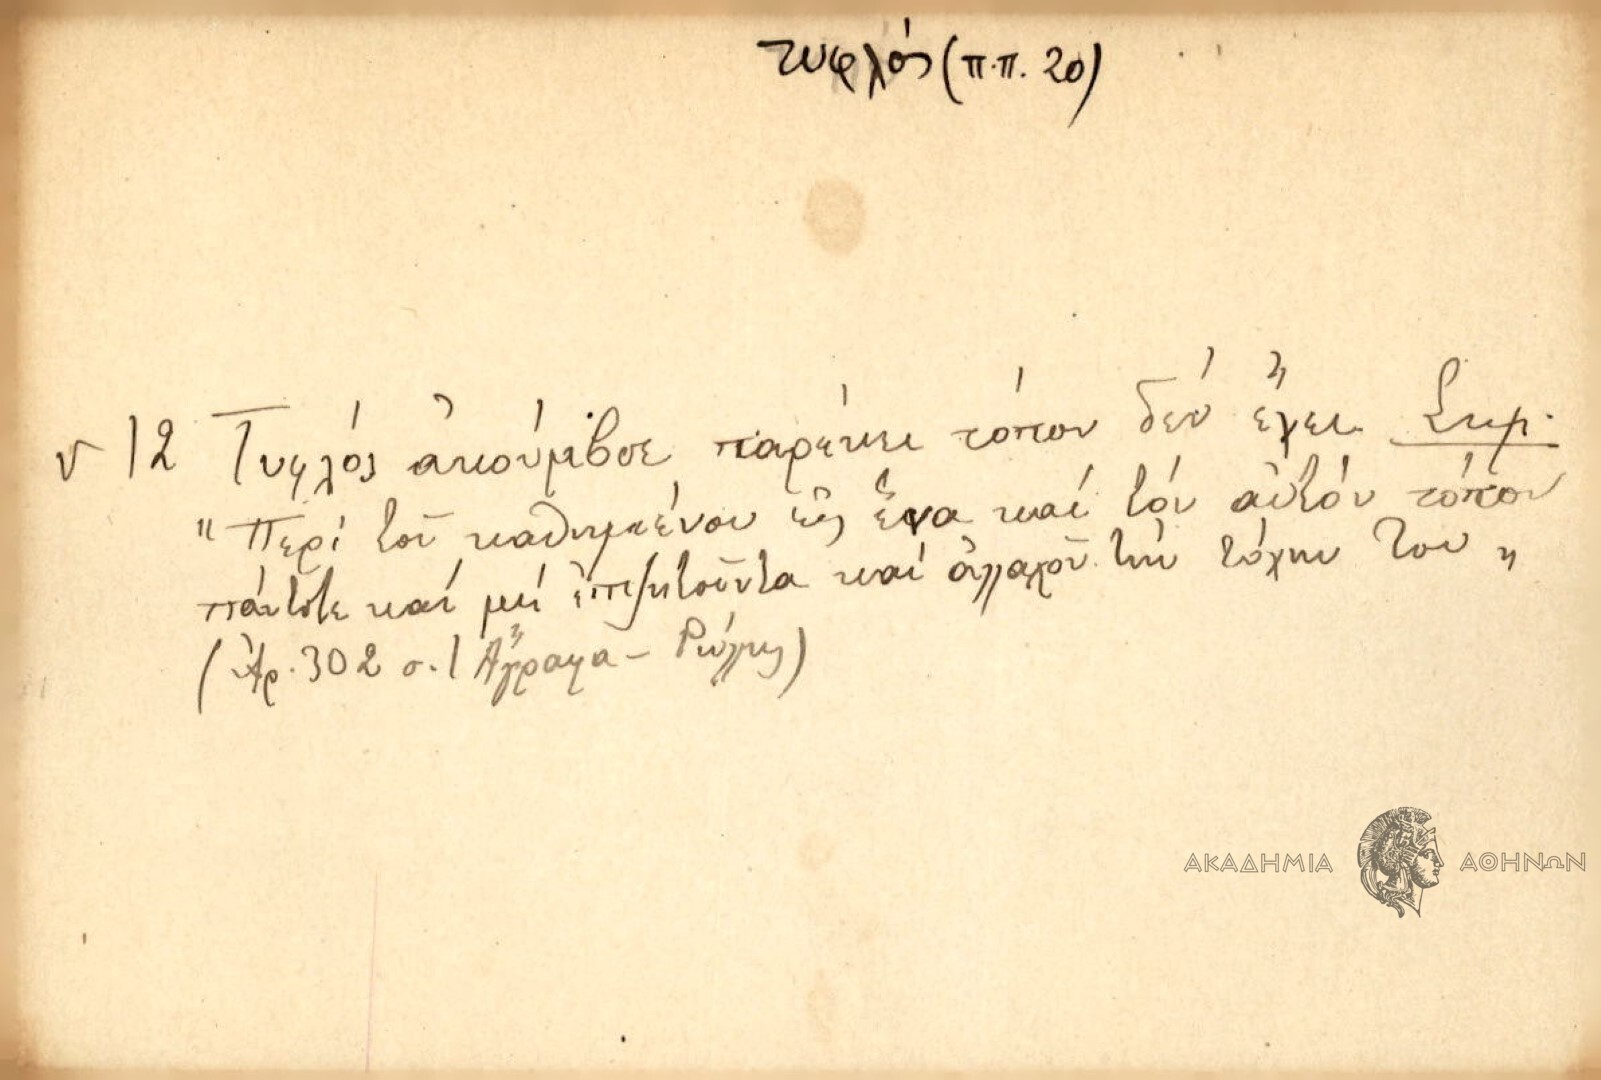 τυφλός (π.π. 20)
12 Τυφλός ἀκούμβσε παρέκει τόπον δέν ἔχει Σημ.
"Περί τοῦ καθημένου εἰς ἕνα καί τόν αὐτόν τόπον
πάντοτε καί μή ἐπιζητοῦντα καί ἀλλαχοῦ τήν τύχην του"
(Ἀρ. 302 σ. 1 Ἄγραφα -
ΑΚΑΔΗΜΙΑ ΑΘΗΝΩΝ